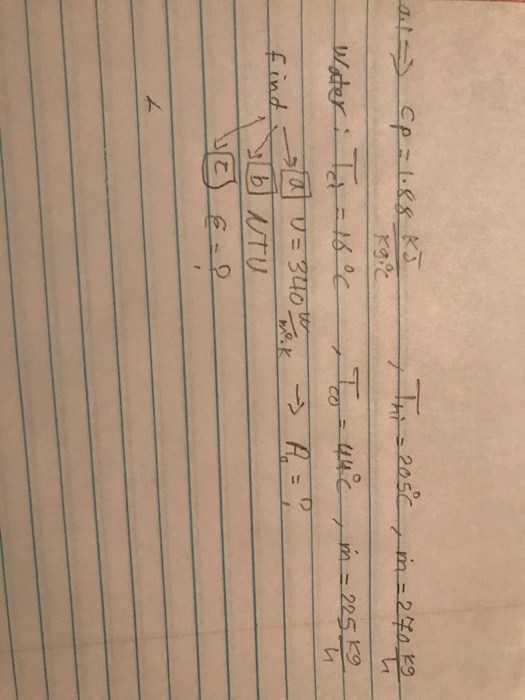 a.1 => Cp = 1.88 KJ/Kg.°C , Thi = 205°C , ṁ = 270 Kg/h
Water : Tci = 16°C , Tco = 44°C , ṁ = 225 Kg/h
find → a U = 340 W/m².K → A = ?
b NTU
c ε = ?